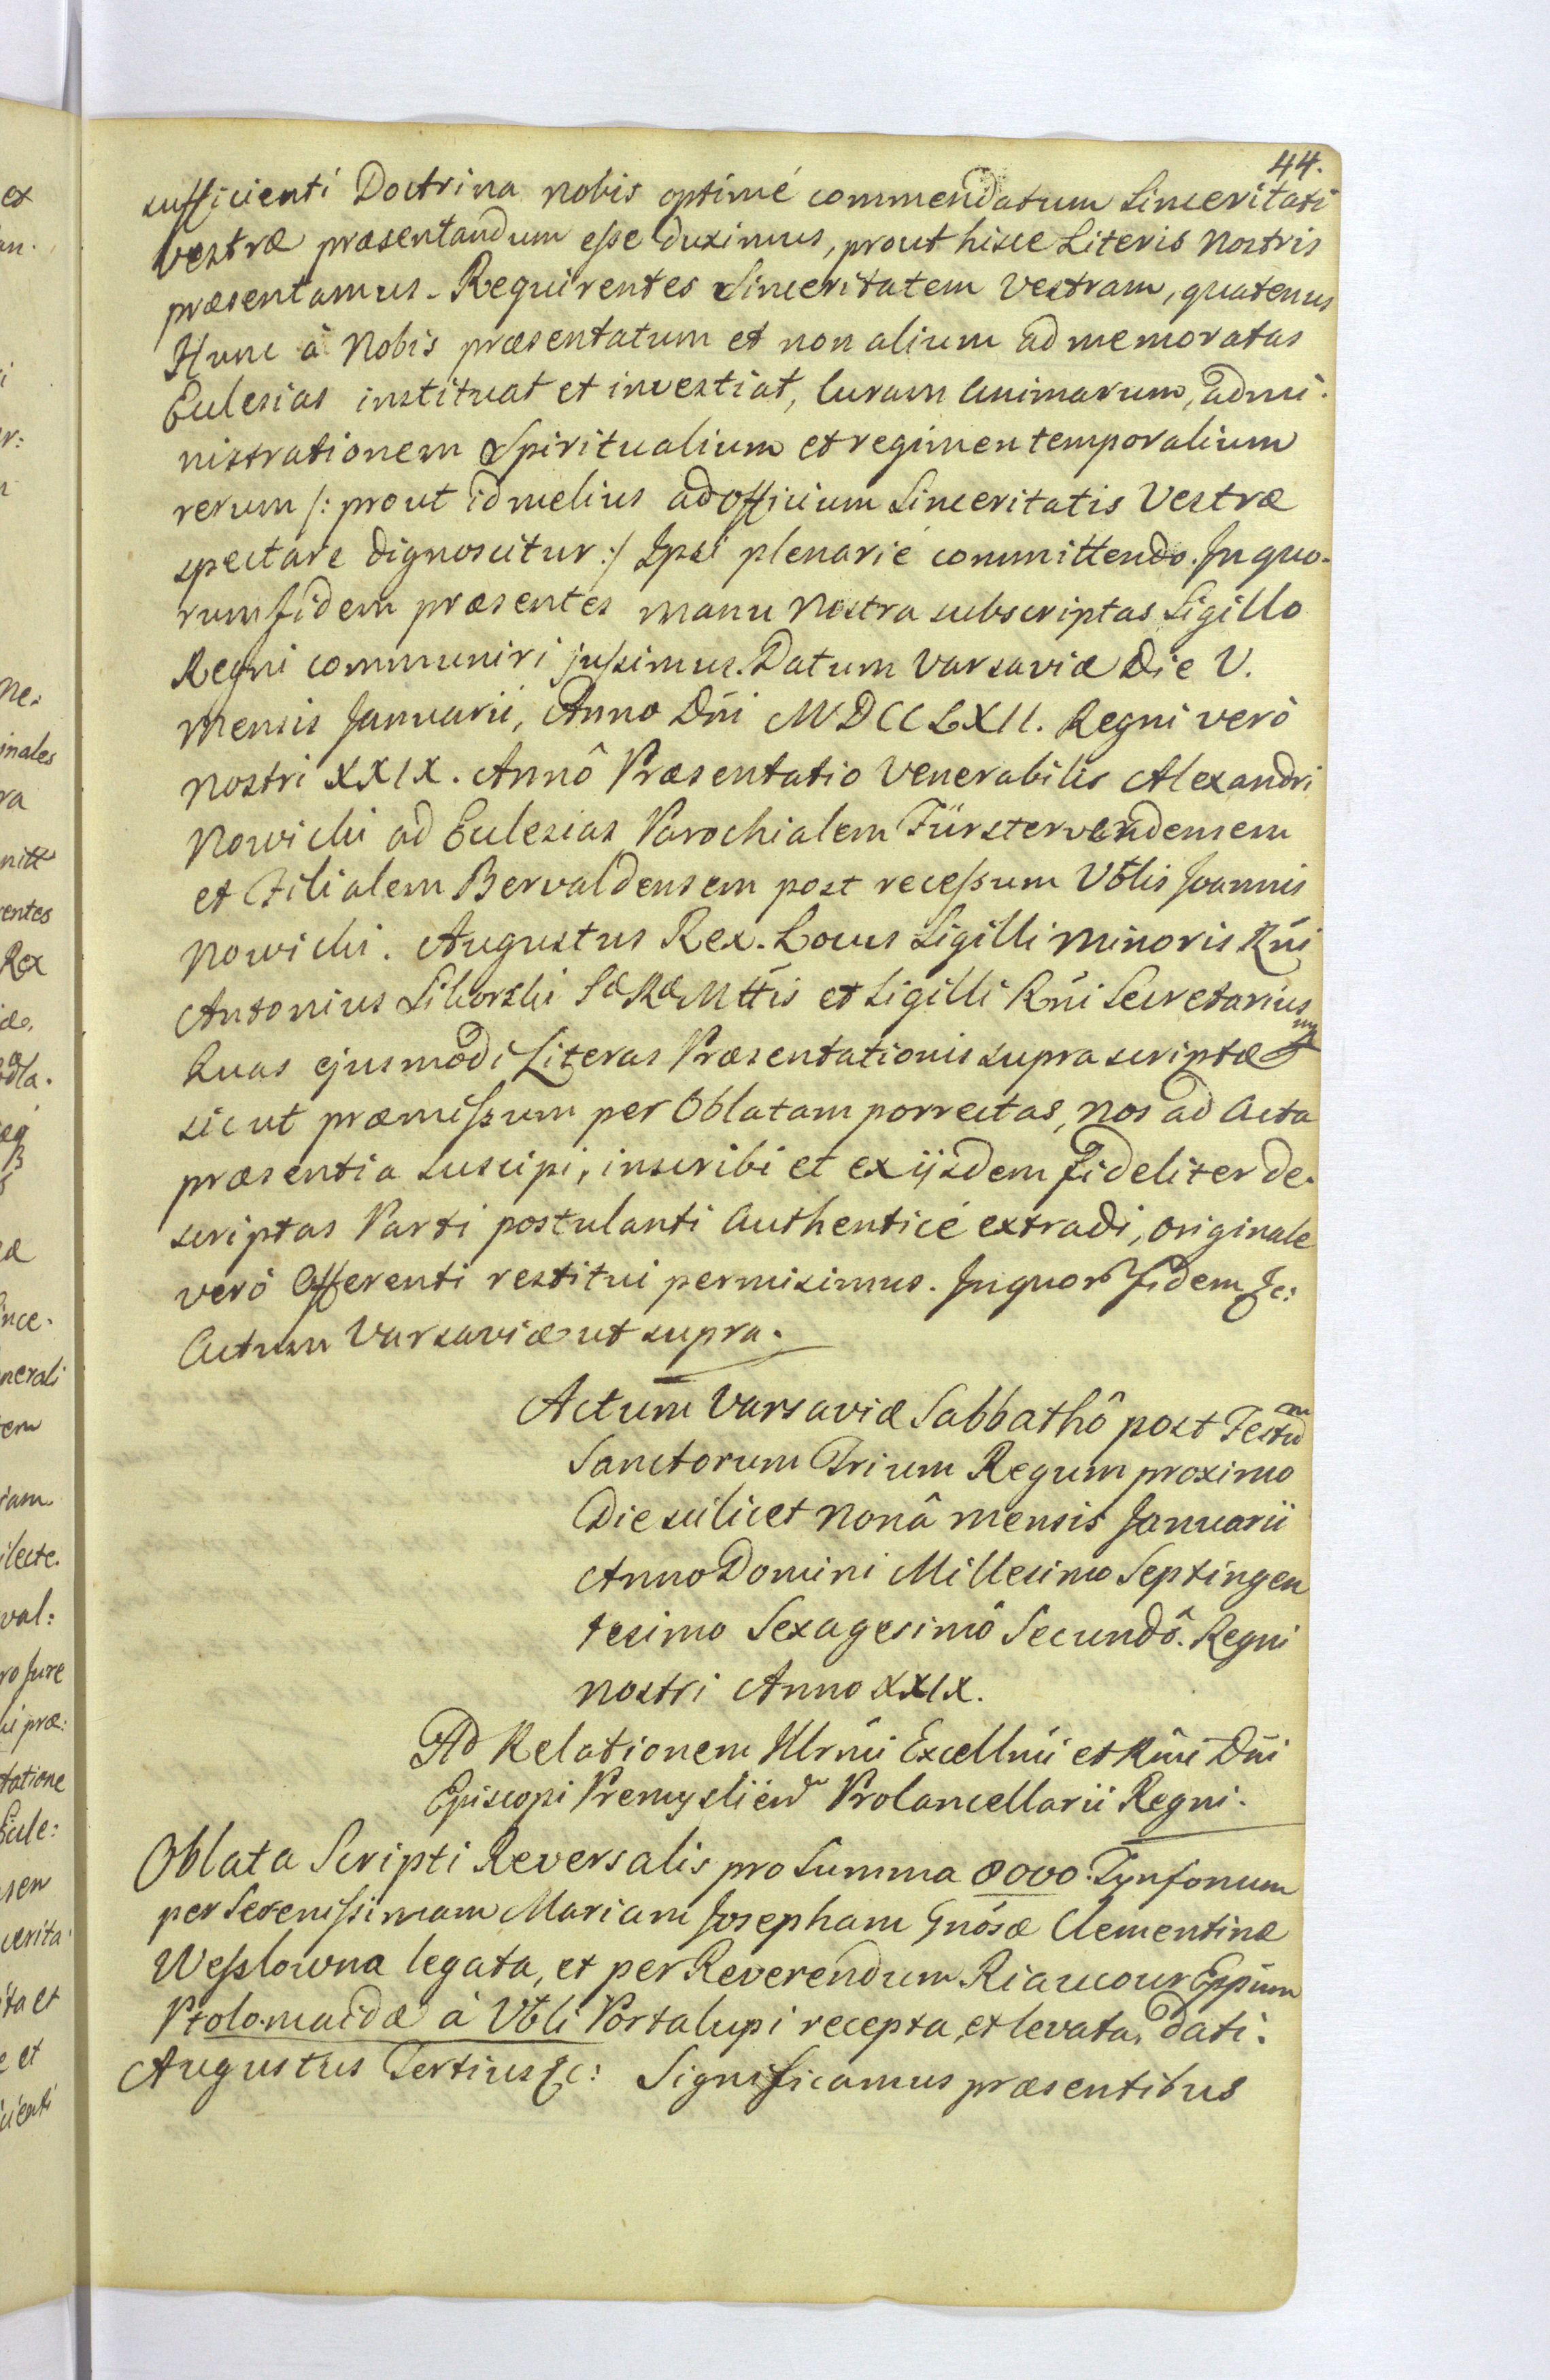 44.
sufficienti Doctrina nobis optimé commendatum Sinceritati
vestræ præsentandum eſse duximus, prout hisce Literis Nostris
præsentamus. Requirentes Sinceritatem Vestram, quatenus
Hunc à Nobis præsentatum et non alium ad memoratas
Ecclesias instituat et investiat, Curam Animarum, admi-
nistrationem Spiritualium et regimen temporalium
rerum /: prout id melius ad Officium Sinceritatis Vestræ
spectare dignoscitur :/ Ipsi plenarié committendo. In quo-
rum fidem præsentes manu Nostra subscriptas Sigillo
Regni communiri juſsimus. Datum Varsaviæ Die V.
Mensis Januarii, Anno Dñi MDCCLXII. Regni verò
Nostri XXIX. Annô Præsentatio Venerabilis Alexandri
Nowicki ad Ecclesias Parochialem Fürsterverdensem
et Filialem Bervaldensem post receſsum Vblis Joannis
Nowicki. Augustus Rex. Locus Sigilli Minoris Rñi
Antonius Sikorski SæRæMttis et Sigilli Rñi Secretarius
mp
Quas ejusmodi Literas Præsentationis supra scriptæ
sicut præmiſsum per Oblatam porrectas, Nos ad Acta
præsentia suscipi, inscribi et ex ijsdem fideliter de-
scriptas Parti postulanti Authenticé extradi, originale
verò Offerenti restitui permisimus. In quor fidem &c:
Actum Varsaviæ ut supra.
Actum Varsaviæ Sabbathô post Festum
Sanctorum Trium Regum proximo
Die scilicet nonâ mensis Januarii
Anno Domini Millesimo Septingen
tesimo Sexagesimô Secundô. Regni
nostri Anno XXIX.
Ad Relationem Illrñi Excellñi et Rñi Dñi
Episcopi Premyslieñ Procancellarii Regni.
Oblata Scripti Reversalis pro Summa 8000. Tynfonum
per Sereniſsimam Mariam Josepham Gnosæ Clementinæ
Weſslowna legata, et per Reverendum Riaucour Eppum
Ptolomaidæ à Vbli Portalupi recepta, et levata, dati.
Augustus Tertius &c: Significamus præsentibus